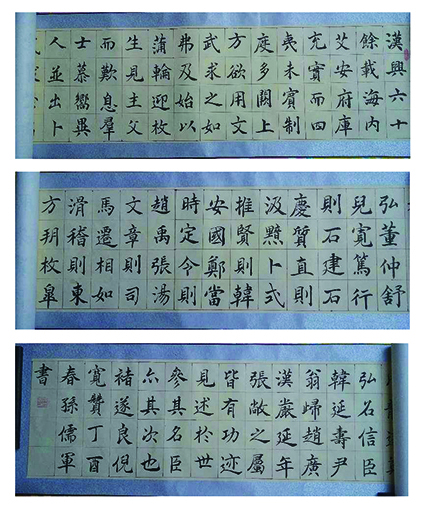 漢興六十
餘載海內
艾安府庫
充實而四
夷未賓制
度多闕上
方欲用文
武求之如
弗及始以
蒲輪迎枚
生見主父
而歎息羣
士慕嚮異
人並出卜
弘董仲舒
兒寬篤行
則石建石
慶質直則
汲黯卜式
推賢則韓
安國鄭當
時定令則
趙禹張湯
文章則司
馬遷相如
滑稽則東
方朔枚皋
弘名信臣
韓延壽尹
翁歸趙廣
漢嚴延年
張敞之屬
皆有功迹
見述於世
參其名臣
亦其次也
褚遂良倪
寬贊丁酉
春孫儒軍
書